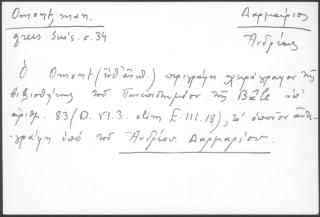 Omont, man.
grecs Suis. σ. 34
Δαρμάριος
Ἀνδρέας
Ὁ Omont περιγράφει χειρόγραφον τῆς
βιβλιοθήκης τοῦ Πανεπιστημίου τῆς Bâle ὑπ'
ἀριθμ. 83 (D. VI. 3. olim E. III. 18), τὸ ὁποῖον ἀντε-
γράφη ὑπὸ τοῦ Ἀνδρέου Δαρμαρίου.